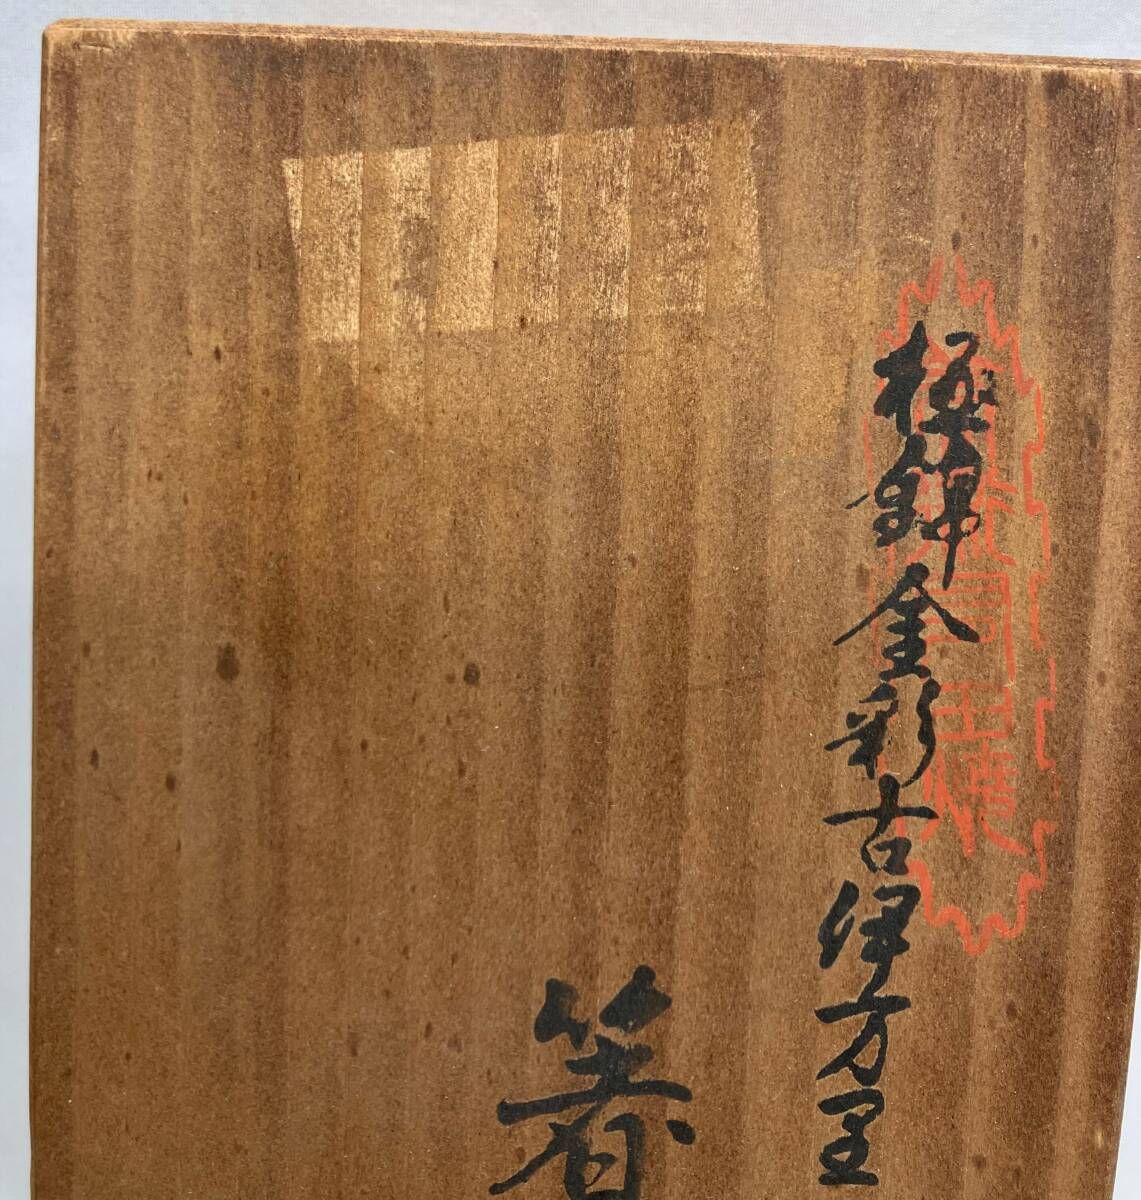 極錦金彩古伊万里
箸